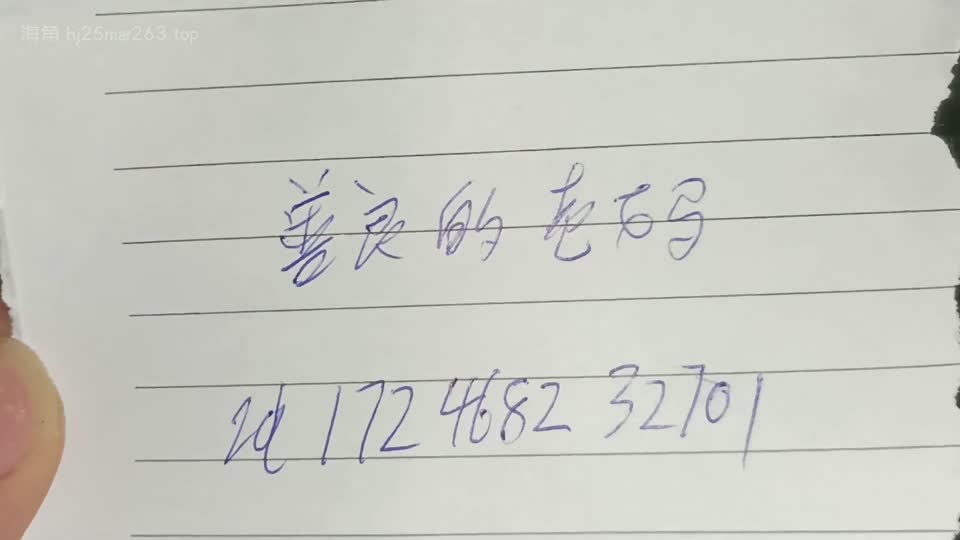 海角 hj25mar263.top
善良的老石马
id 172468232701